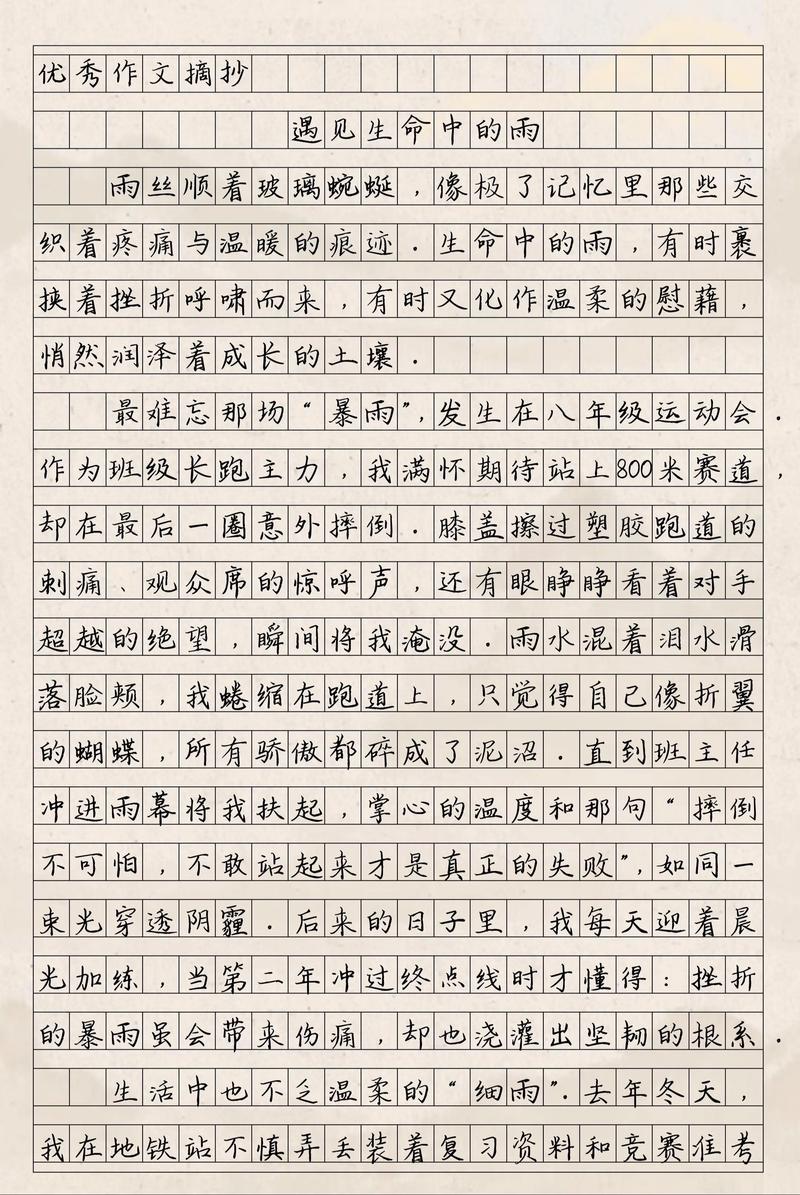 优秀作文摘抄
遇见生命中的雨
雨丝顺着玻璃蜿蜒，像极了记忆里那些交
织着疼痛与温暖的痕迹．生命中的雨，有时裹
挟着挫折呼啸而来，有时又化作温柔的慰藉，
悄然润泽着成长的土壤．
最难忘那场“暴雨”，发生在八年级运动会．
作为班级长跑主力，我满怀期待站上800米赛道，
却在最后一圈意外摔倒．膝盖擦过塑胶跑道的
刺痛、观众席的惊呼声，还有眼睁睁看着对手
超越的绝望，瞬间将我淹没．雨水混着泪水滑
落脸颊，我蜷缩在跑道上，只觉得自己像折翼
的蝴蝶，所有骄傲都碎成了泥沼．直到班主任
冲进雨幕将我扶起，掌心的温度和那句“摔倒
不可怕，不敢站起来才是真正的失败”，如同一
束光穿透阴霾．后来的日子里，我每天迎着晨
光加练，当第二年冲过终点线时才懂得：挫折
的暴雨虽会带来伤痛，却也浇灌出坚韧的根系．
生活中也不乏温柔的“细雨”．去年冬天，
我在地铁站不慎弄丢装着复习资料和竞赛准考